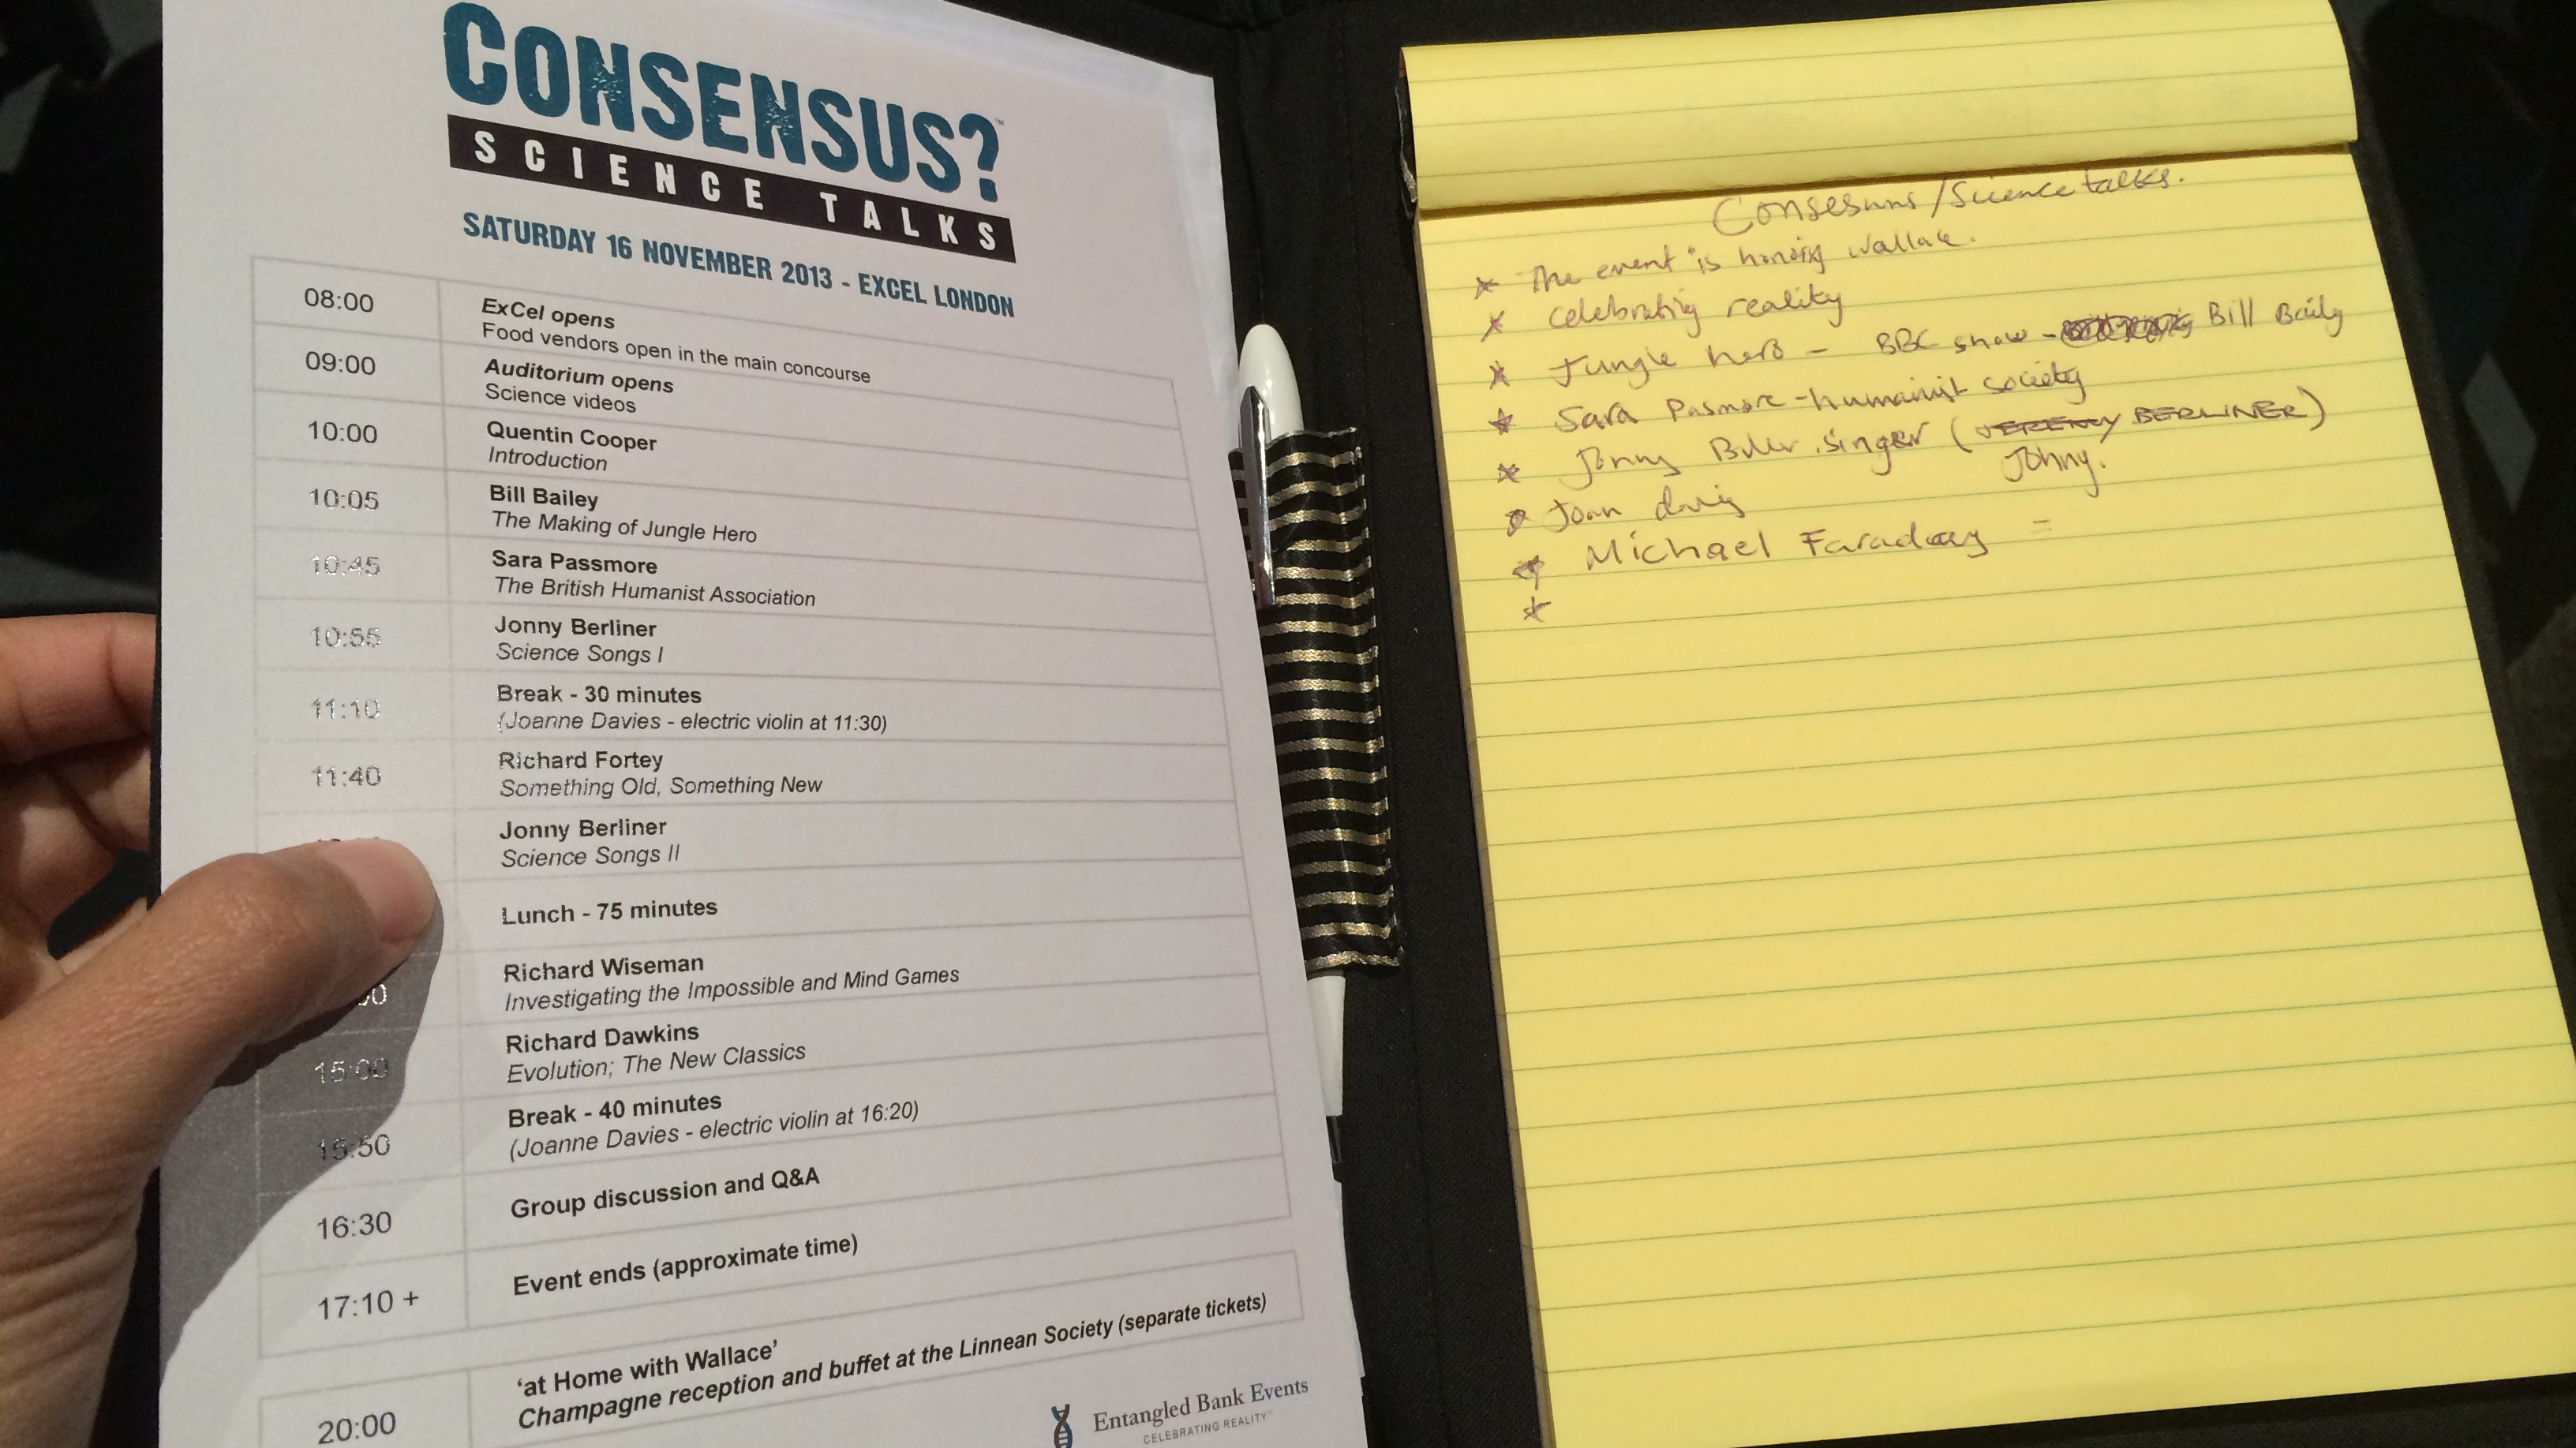 CONSENSUS?™
SCIENCE TALKS
SATURDAY 16 NOVEMBER 2013 - EXCEL LONDON
08:00 ExCel opens
Food vendors open in the main concourse
09:00 Auditorium opens
Science videos
10:00 Quentin Cooper
Introduction
10:05 Bill Bailey
The Making of Jungle Hero
10:45 Sara Passmore
The British Humanist Association
10:55 Jonny Berliner
Science Songs I
11:10 Break - 30 minutes
(Joanne Davies - electric violin at 11:30)
11:40 Richard Fortey
Something Old, Something New
Jonny Berliner
Science Songs II
Lunch - 75 minutes
Richard Wiseman
Investigating the Impossible and Mind Games
15:00 Richard Dawkins
Evolution; The New Classics
15:50 Break - 40 minutes
(Joanne Davies - electric violin at 16:20)
16:30 Group discussion and Q&A
17:10 + Event ends (approximate time)
20:00 ‘at Home with Wallace’
Champagne reception and buffet at the Linnean Society (separate tickets)
Entangled Bank Events
CELEBRATING REALITY™
Consesuns/Science talks.
The event is honoing wallace.
Celebrating reality
Jungle hero - BBC show - Bill Baily
Sara Pasmore - humanist society
Jonny singer (JEREMY BERLINER)
Johny.
Joan davis
Michael Faraday =